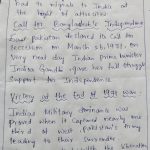 had to migrate to India at
the night of
Call for Bangladesh's Independence
East Pakistan declared its call for
secession on March 26, 1971. on
very next day Indian prime minister
Indira Gandhi gave her full
support for Independence
Victory at the End of 1971 war
Indian military dominance was
proved when it captured nearly one
third of west Pakistan's army
leading to their surrender